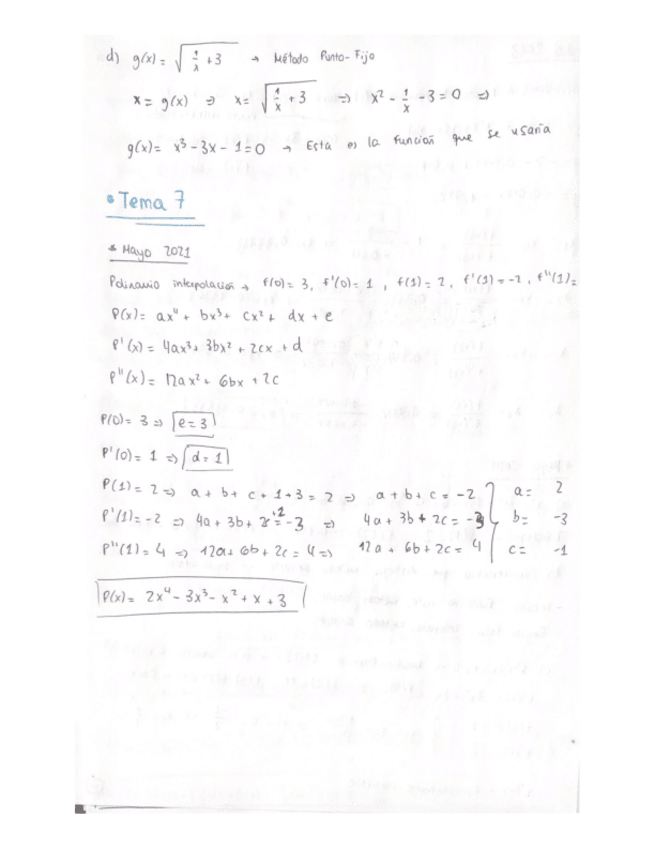 d) g(x) = √(1/x + 3) → Método Punto-Fijo
x = g(x) ⇒ x = √(1/x + 3) ⇒ x² - 1/x - 3 = 0 ⇒
g(x) = x³ - 3x - 1 = 0 → Esta es la función que se usaría
• Tema 7
* Mayo 2021
Polinomio interpolación → f(0) = 3, f'(0) = 1, f(1) = 2, f'(1) = -2, f''(1) =
P(x) = ax⁴ + bx³ + cx² + dx + e
P'(x) = 4ax³ + 3bx² + 2cx + d
P''(x) = 12ax² + 6bx + 2c
P(0) = 3 ⇒ e = 3
P'(0) = 1 ⇒ d = 1
P(1) = 2 ⇒ a + b + c + 1 + 3 = 2 ⇒ a + b + c = -2 a = 2
P'(1) = -2 ⇒ 4a + 3b + 2c = -3 ⇒ 4a + 3b + 2c = -3 b = -3
P''(1) = 4 ⇒ 12a + 6b + 2c = 4 ⇒ 12a + 6b + 2c = 4 c = -1
P(x) = 2x⁴ - 3x³ - x² + x + 3